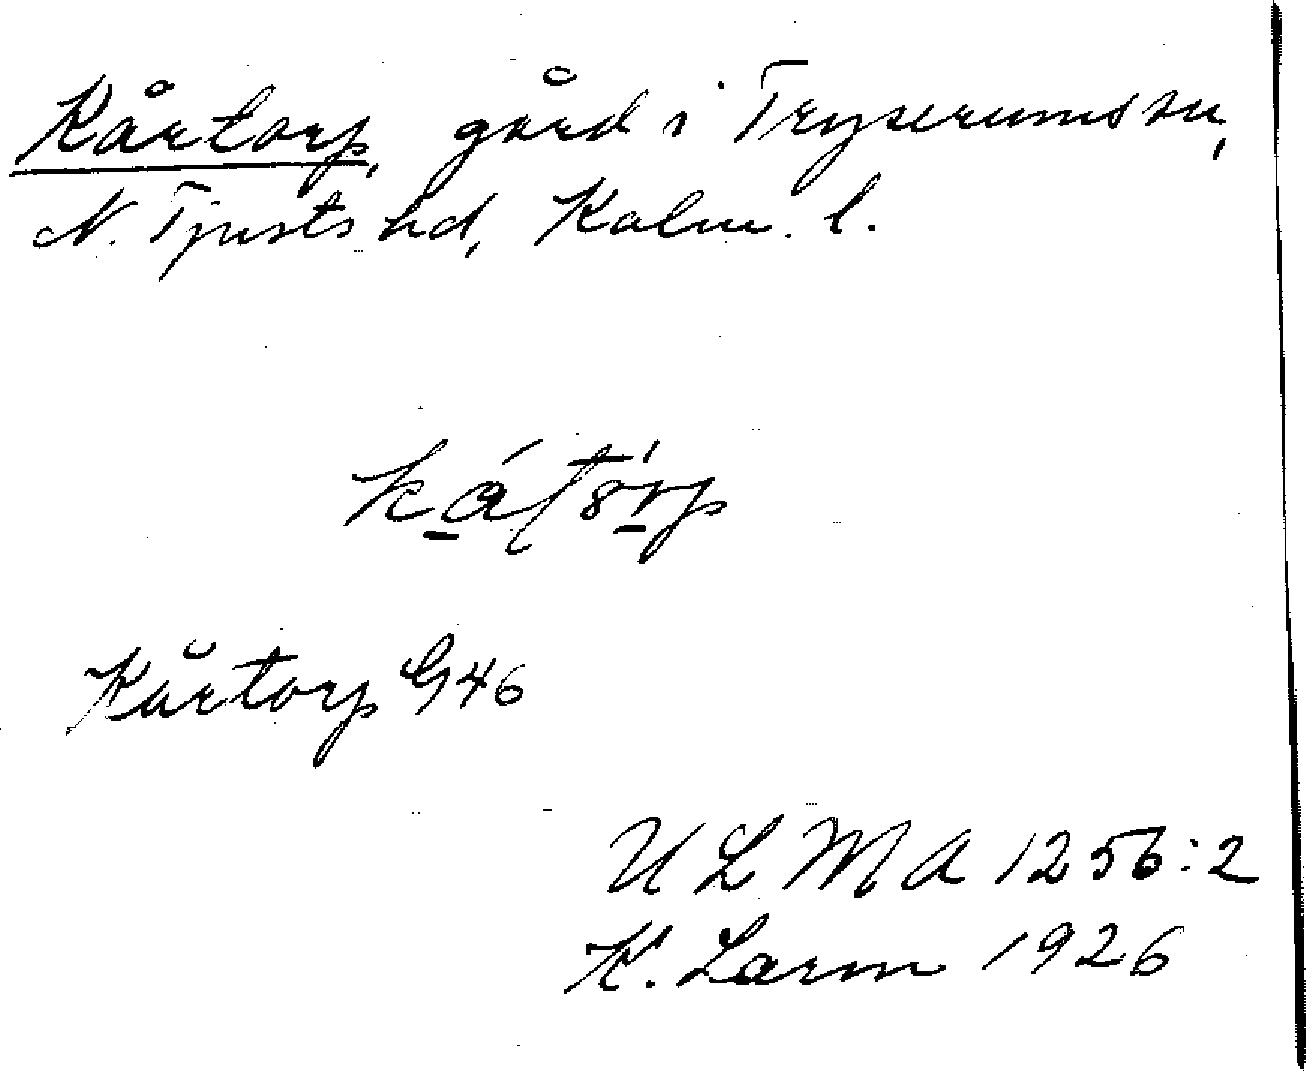 Kårtorp, gård i Tryserums sn,
N. Tjusts hd, Kalm. l.
Kårtorp G46
ULMA 1256:2
K. Larm 1926